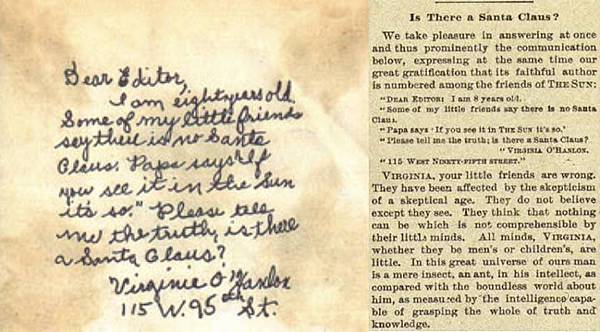 Dear Editor,
I am eight years old.
Some of my little friends
say there is no Santa
Claus. Papa says "If
you see it in the Sun
it's so." Please tell
me the truth, is there
a Santa Claus?
Virginia O'Hanlon
115 W. 95th St.
Is There a Santa Claus?
We take pleasure in answering at once
and thus prominently the communication
below, expressing at the same time our
great gratification that its faithful author
is numbered among the friends of THE SUN:
"DEAR EDITOR: I am 8 years old.
"Some of my little friends say there is no Santa
Claus.
"Papa says 'If you see it in THE SUN it's so.'
"Please tell me the truth; is there a Santa Claus?
"VIRGINIA O'HANLON.
"115 WEST NINETY-FIFTH STREET."
VIRGINIA, your little friends are wrong.
They have been affected by the skepticism
of a skeptical age. They do not believe
except they see. They think that nothing
can be which is not comprehensible by
their little minds. All minds, VIRGINIA,
whether they be men's or children's, are
little. In this great universe of ours man
is a mere insect, an ant, in his intellect, as
compared with the boundless world about
him, as measured by the intelligence capa-
ble of grasping the whole of truth and
knowledge.